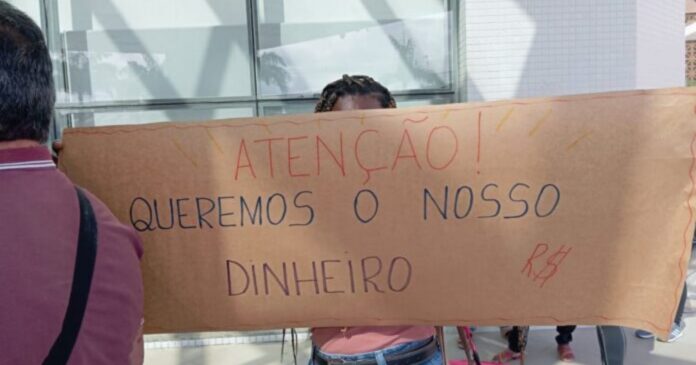 ATENÇÃO!
QUEREMOS O NOSSO
DINHEIRO R$